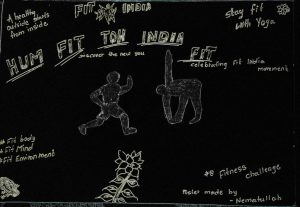 FIT INDIA
A healthy
outside starts
from inside
stay fit
with Yoga
HUM FIT TOH INDIA FIT
discover the new you
celebrating Fit India
movement
# Fit body
# Fit Mind
# Fit Environment
# Fitness
challenge
Poster made by
- Nematullah